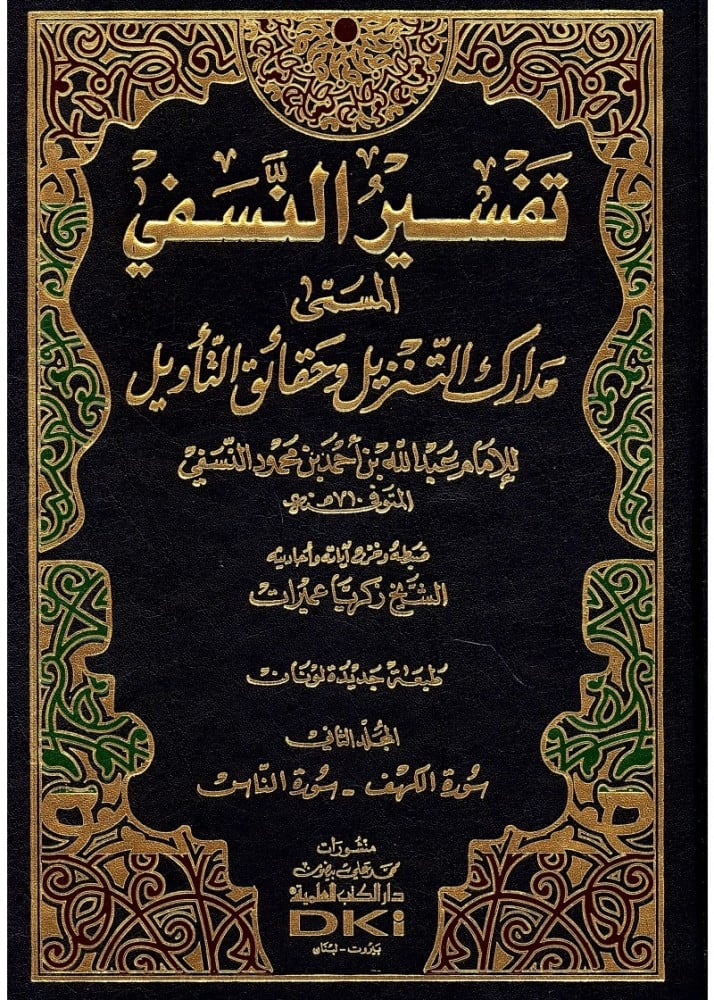 تَفْسِيرُ النَّسَفي
المسَمّى
مَدارك التّنزيل وحَقائق التّأويل
للإمَام عَبْد الله بْن أحْمَد بن محمُود النّسَفيّ
المتوَفى ٧١٠ سنة هـ
ضبطه وخرج آياته وأحاديثه
الشّيخ زكريّا عميرات
طبعَة جَديدة لونَان
المجلّد الثاني
سُورة الكهف - سُورة النّاس
منشورات
محمد علي بيضون
دار الكتب العلمية
DKi
بيروت - لبنان